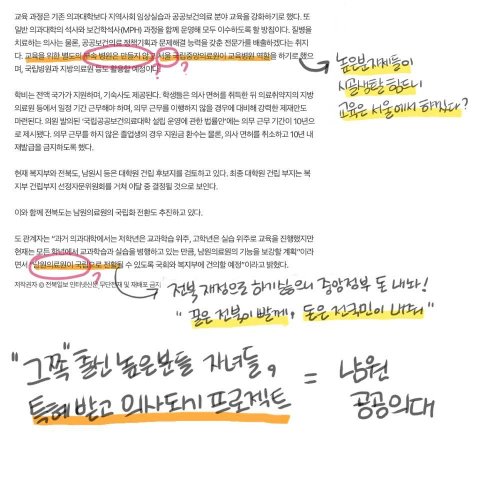 교육 과정은 기존 의과대학보다 지역사회 임상실습과 공공보건의료 분야 교육을 강화하기로 했다. 또
일반 의과대의 석사와 보건학석사(MPH) 과정을 함께 운영해 모두 이수하도록 할 방침이다. 질병을
치료하는 의사는 물론, 공공보건의료 정책기획과 문제해결 능력을 갖춘 전문가를 배출하겠다는 취지
다. 교육을 위한 별도의 부속 병원은 만들지 않고 서울 국립중앙의료원이 교육병원 역할을 하기로 했으
며, 국립병원과 지방의료원 등도 활용할 예정이다.
높은분 자제들이
시골생활 힘드니
교육은 서울에서 하겠다?
학비는 전액 국가가 지원하며, 기숙사도 제공된다. 학생들은 의사 면허를 취득한 뒤 의료취약지의 지방
의료원 등에서 일정 기간 근무해야 하며, 의무 근무를 이행하지 않을 경우에 대비해 강력한 제재안도
마련된다. 의원 발의된 '국립공공보건의료대학 설립 운영에 관한 법률안'에는 의무 근무 기간이 10년으
로 제시됐다. 의무 근무를 하지 않은 졸업생의 경우 지원금 환수는 물론, 의사 면허를 취소하고 10년 내
재발급을 금지하도록 했다.
현재 복지부와 전북도, 남원시 등은 대학원 건립 후보지를 검토하고 있다. 최종 대학원 건립 부지는 복
지부 건립부지 선정자문위원회를 거쳐 이달 중 결정될 것으로 보인다.
이와 함께 전북도는 남원의료원의 국립화 전환도 추진하고 있다.
도 관계자는 "과거 의과대학에서는 저학년은 교과학습 위주, 고학년은 실습 위주로 교육을 진행했지만
현재는 모든 학년에서 교과학습과 실습을 병행하고 있는 만큼, 남원의료원의 기능을 보강할 계획"이라
면서 "남원의료원이 국립으로 전환될 수 있도록 국회와 복지부에 건의할 예정"이라고 밝혔다.
저작권자 © 전북일보 인터넷신문 무단전재 및 재배포 금지
?
전북 재정으로 하기싫으니 중앙정부 돈 내놔!
"꿀은 전북이 빨게, 돈은 전국민이 내줘"
"그쪽" 출신 높은분들 자녀들,
특혜 받고 의사되기 프로젝트
= 남원
공공의대